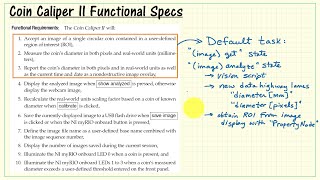 Coin Caliper II Functional Specs
Functional Requirements: The Coin Caliper II will:
1. Accept an image of a single circular coin contained in a user-defined
region of interest (ROI),
2. Measure the coin's diameter in both pixels and real-world units (millime-
ters),
3. Report the coin's diameter in both pixels and in real-world units as well
as the current time and date as a nondestructive image overlay,
4. Display the analyzed image when show analyzed is pressed, otherwise
display the webcam image,
5. Recalculate the real-world scaling factor based on a coin of known
diameter when calibrate is clicked,
6. Save the currently displayed image to a USB flash drive when save image
is clicked or when the NI myRIO button is pressed,
7. Define the image file name as a user-defined base name combined with
the image sequence number,
8. Display the number of images saved during the current session,
9. Illuminate the NI myRIO onboard LED 0 when a coin is present, and
10. Illuminate the NI myRIO onboard LEDs 1 to 3 when a coin's measured
diameter exceeds a user-defined threshold entered on the front panel.
Default task:
"(image) get" state
"(image) analyze" state
→ Vision Script
→ new data highway lanes
"diameter [mm]"
"diameter [pixels]"
→ obtain ROI from image
display with "Property Node"